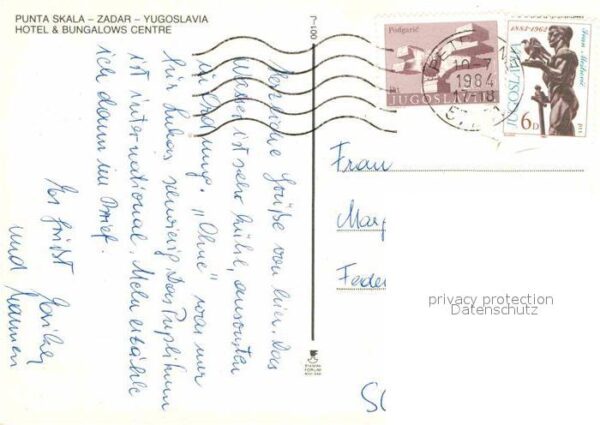 PUNTA SKALA – ZADAR – YUGOSLAVIA
HOTEL & BUNGALOWS CENTRE
7-100
Podgarić
JUGOSLAVIJA
1883-1962
Ivan Meštrović
JUGOSLAVIJA
6 D
10-7
1984
17-18
Herzliche Grüße von hier. Das
Wasser ist sehr kühl, ansonsten
in Ordnung. „Ohne" war nur
für Lukas schwierig. Das Publikum
ist international. Mehr erzähle
ich dann im Brief.
Es grüßt
und
Frau
Feder
privacy protection
Datenschutz